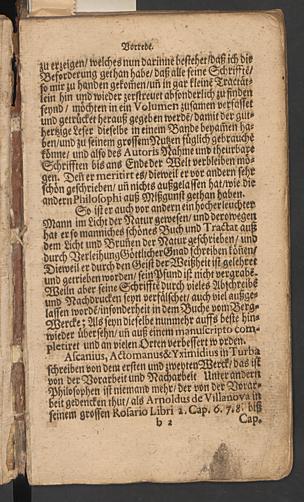 Vorrede.
zu erzeigen/ welches nun darinne bestehet/ daß ich die
Beforderung gethan habe/ daß alle seine Schrifftē/
so mir zu handen gekom̄en/ uñ in gar kleine Tractāt-
lein hin und wieder zerstreuet absonderlich zu finden
seynd/ möchten in ein Volumen zusamen verfasset
und getrücket herauß gegeben werdē/ damit der gut-
hertzige Leser dieselbe in einem Bande beysam̄en ha-
ben/ und zu seinem grossem Nutzen füglich gebrauchē
könne/ und also des Autoris Nahme und theurbare
Schrifften bis ans Ende der Welt verbleiben mö-
gen. Deñ er meritirt es/ dieweil er vor andern sehr
schön geschrieben/ uñ nichts außgelassen hat/ wie die
andern Philosophi auß Mißgunst gethan haben.
So ist er auch vor andern ein hocherleuchteter
Mann im Licht der Natur gewesen/ und derowegen
hat er so manniches schönes Buch und Tractat auß
dem Licht und Bruñen der Natur geschrieben/ und
durch Verleihung Göttlicher Gnad schreiben köñen/
Dieweil er durch den Geist der Weißheit ist gelehret
und getrieben worden/ sein Pfund ist nicht vergrabē.
Weiln aber seine Schriffte durch vieles Abschreibē
und Nachdrucken seyn verfälschet/ auch viel außge-
lassen wordē/ insonderheit in dem Buche vom Berg-
Wercke; Als seyn dieselbe nunmehr auffs beste hin-
wieder übersehn/ uñ auß einem manuscripto com-
pletiret und an vielen Orten verbessert worden.
Ascanius, Actomanus & Yximidius in Turba
schreiben von dem ersten und zweyten Werck/ das ist
von der Vorarbeit und Nacharbeit Unter andern
Philosophen ist niemand mehr/ der von der Vorar-
beit gedencken thut/ als Arnoldus de Villanova in
seinem grossen Rosario Libri 2. Cap. 6. 7. 8. biß
b 2
Cap.